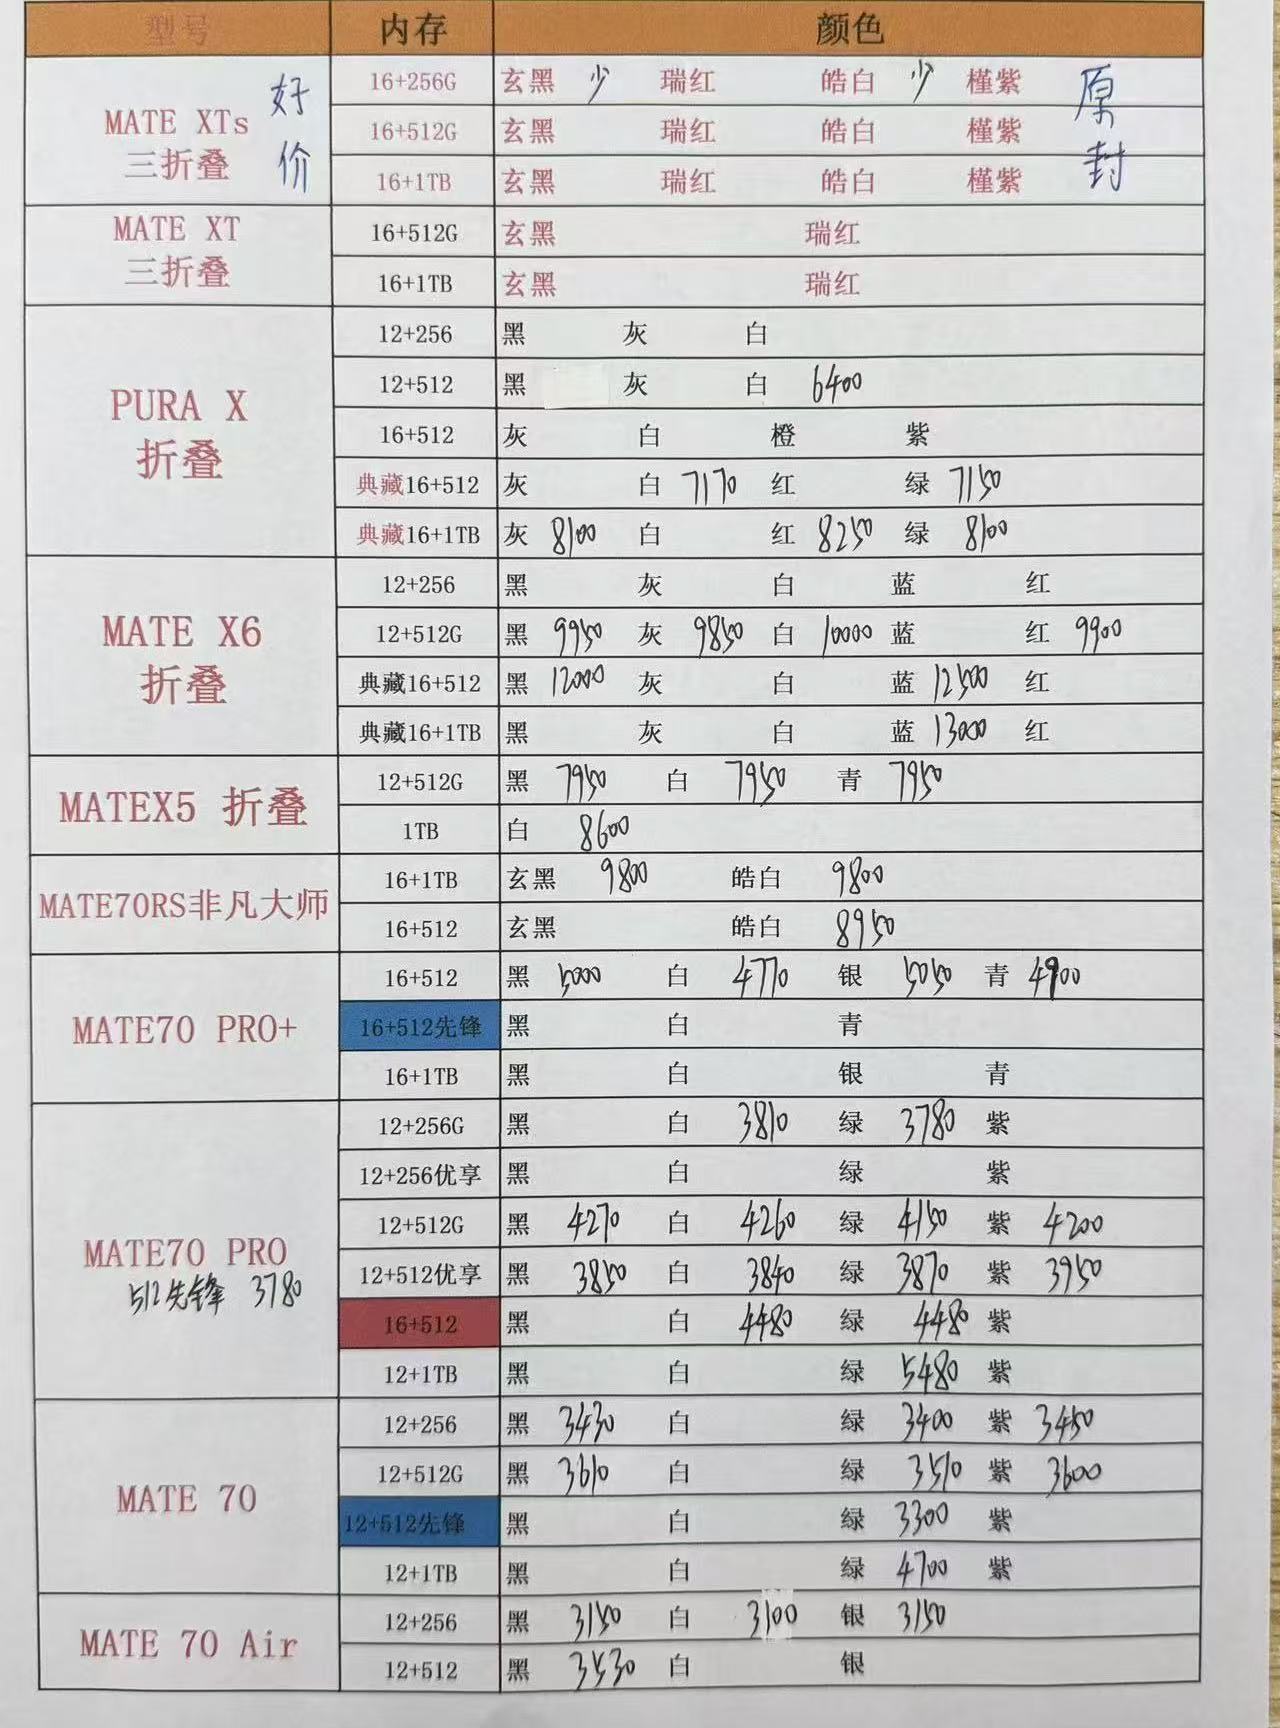 型号 内存 颜色
MATE XTs 三折叠 好价 原封
16+256G 玄黑 少 瑞红 皓白 少 槿紫
16+512G 玄黑 瑞红 皓白 槿紫
16+1TB 玄黑 瑞红 皓白 槿紫
MATE XT 三折叠
16+512G 玄黑 瑞红
16+1TB 玄黑 瑞红
PURA X 折叠
12+256 黑 灰 白
12+512 黑 灰 白 6400
16+512 灰 白 橙 紫
典藏16+512 灰 白 7170 红 绿 7150
典藏16+1TB 灰 8100 白 红 8250 绿 8100
MATE X6 折叠
12+256 黑 灰 白 蓝 红
12+512G 黑 9950 灰 9850 白 10000 蓝 红 9900
典藏16+512 黑 12000 灰 白 蓝 12500 红
典藏16+1TB 黑 灰 白 蓝 13000 红
MATEX5 折叠
12+512G 黑 7950 白 7950 青 7950
1TB 白 8600
MATE70RS非凡大师
16+1TB 玄黑 9800 皓白 9800
16+512 玄黑 皓白 8950
MATE70 PRO+
16+512 黑 5000 白 4770 银 5050 青 4900
16+512先锋 黑 白 青
16+1TB 黑 白 银 青
MATE70 PRO
512先锋 3780
12+256G 黑 白 3810 绿 3780 紫
12+256优享 黑 白 绿 紫
12+512G 黑 4270 白 4260 绿 4150 紫 4200
12+512优享 黑 3850 白 3840 绿 3870 紫 3950
16+512 黑 白 4480 绿 4480 紫
12+1TB 黑 白 绿 5480 紫
MATE 70
12+256 黑 3430 白 绿 3400 紫 3450
12+512G 黑 3610 白 绿 3510 紫 3600
12+512先锋 黑 白 绿 3300 紫
12+1TB 黑 白 绿 4700 紫
MATE 70 Air
12+256 黑 3150 白 3100 银 3150
12+512 黑 3530 白 银